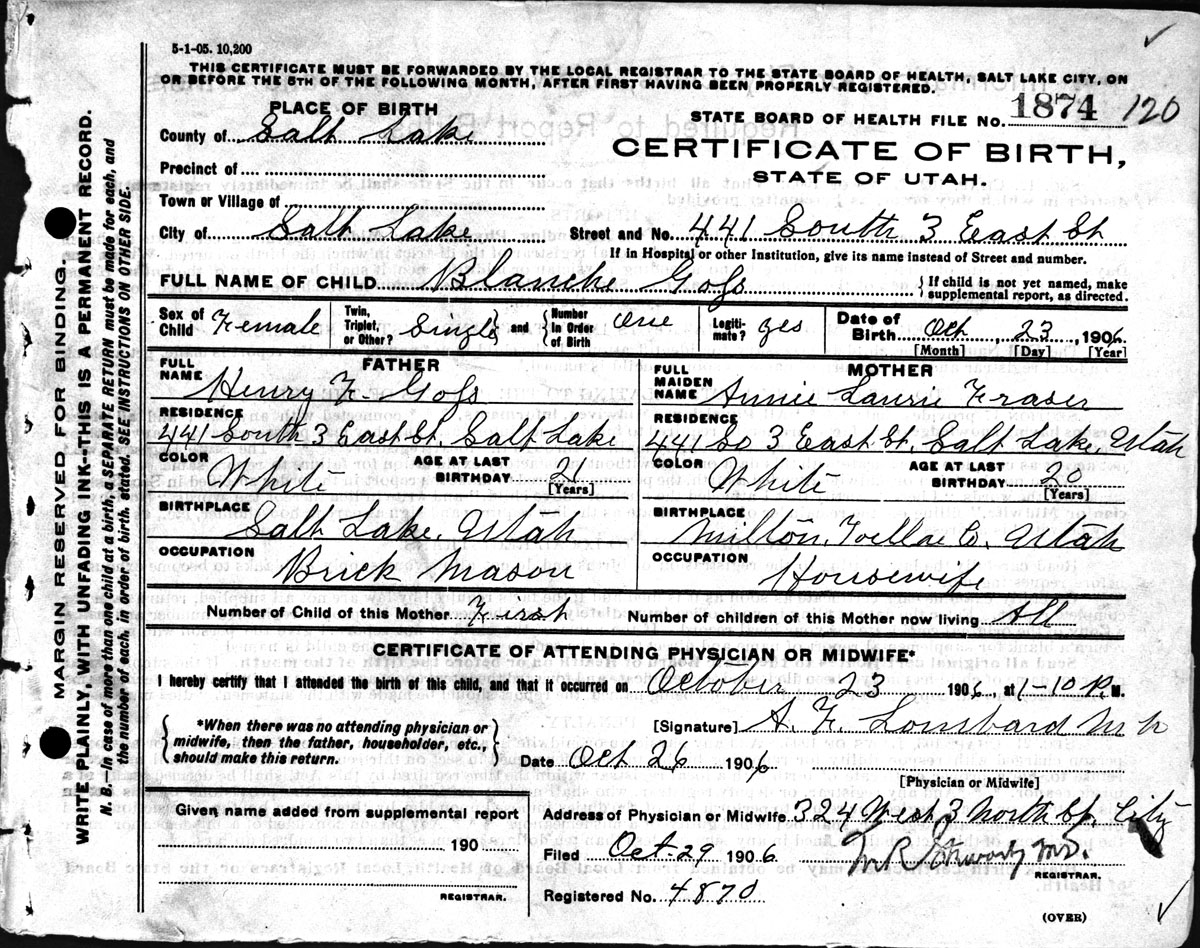 5-1-05. 10,200
THIS CERTIFICATE MUST BE FORWARDED BY THE LOCAL REGISTRAR TO THE STATE BOARD OF HEALTH, SALT LAKE CITY, ON
OR BEFORE THE 5TH OF THE FOLLOWING MONTH, AFTER FIRST HAVING BEEN PROPERLY REGISTERED.
PLACE OF BIRTH
STATE BOARD OF HEALTH FILE No. 1874 120
County of Salt Lake
CERTIFICATE OF BIRTH,
STATE OF UTAH.
Precinct of
Town or Village of
City of Salt Lake Street and No. 441 South 3 East St
If in Hospital or other Institution, give its name instead of Street and number.
FULL NAME OF CHILD Blanche Goss { If child is not yet named, make supplemental report, as directed.
Sex of Child Female Twin, Triplet, or Other? Single and Number In Order of Birth One Legiti-mate? yes Date of Birth Oct 23, 1906
[Month] [Day] [Year]
FATHER MOTHER
FULL NAME Henry F. Goss FULL MAIDEN NAME Annie Laurie Fraser
RESIDENCE RESIDENCE
441 South 3 East St. Salt Lake 441 So 3 East St, Salt Lake, Utah
COLOR White AGE AT LAST BIRTHDAY 21 [Years] COLOR White AGE AT LAST BIRTHDAY 20 [Years]
BIRTHPLACE BIRTHPLACE
Salt Lake, Utah Milton, Toellae Co. Utah
OCCUPATION OCCUPATION
Brick Mason Housewife
Number of Child of this Mother First Number of children of this Mother now living All
CERTIFICATE OF ATTENDING PHYSICIAN OR MIDWIFE*
I hereby certify that I attended the birth of this child, and that it occurred on October 23 1906, at 1-10 P. M.
{ *When there was no attending physician or midwife, then the father, householder, etc., should make this return. }
[Signature] A. F. Lombard
Date Oct 26 1906.
[Physician or Midwife]
Given name added from supplemental report
190
REGISTRAR.
Address of Physician or Midwife 324 West 3 North St, City
Filed Oct-29 1906 M.D.
REGISTRAR.
Registered No. 4870
(OVER)
MARGIN RESERVED FOR BINDING.
WRITE PLAINLY, WITH UNFADING INK--THIS IS A PERMANENT RECORD.
N. B.—In case of more than one child at a birth, a SEPARATE RETURN must be made for each, and
the number of each, in order of birth, stated. SEE INSTRUCTIONS ON OTHER SIDE.